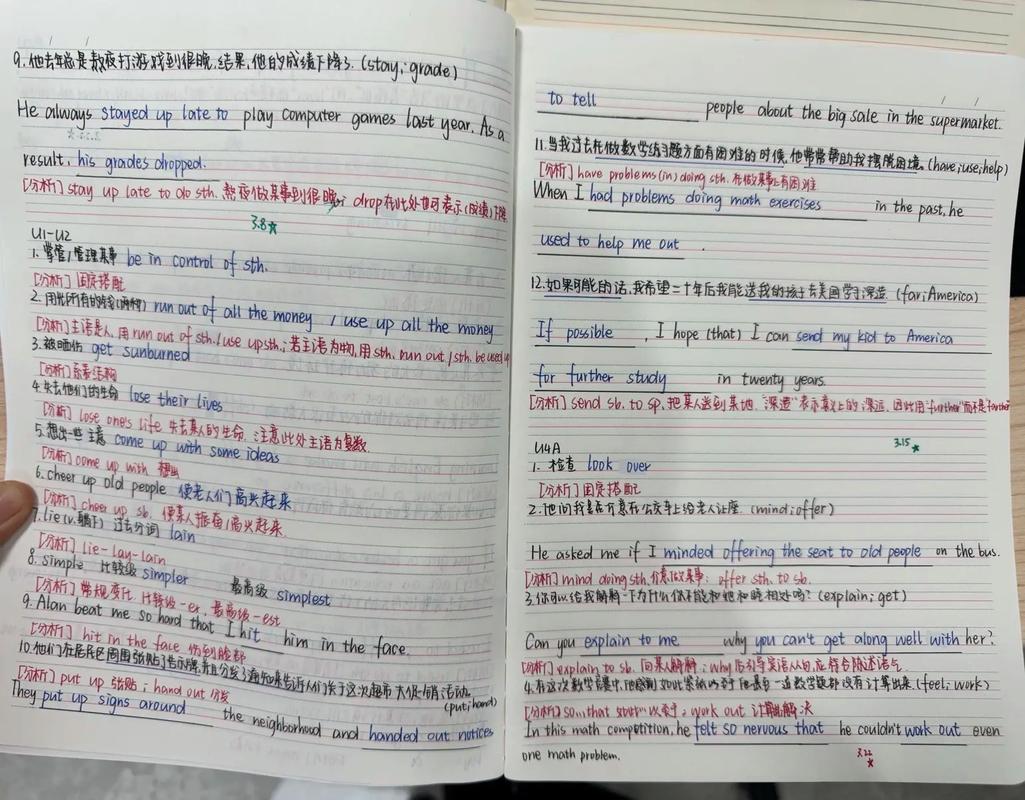 9.他去年总是熬夜打游戏到很晚,结果,他的成绩下降了.(stay;grade)
He always stayed up late to play computer games last year. As a
result, his grades dropped.
[分析] stay up late to do sth. 熬夜做某事到很晚; drop在此处也可表示(成绩)下降
3.8
U1-U2
1.掌管/管理某事 be in control of sth.
[分析]固定搭配
2.用光所有的钱(两种) run out of all the money / use up all the money
[分析]主语是人,用run out of sth./use up sth.;若主语为物,用sth. run out / sth. be used up
3.被晒伤 get sunburned
[分析]系表结构
4.失去他们的生命 lose their lives
[分析] lose one's life 失去某人的生命,注意此处主语为复数.
5.想出一些主意 come up with some ideas
[分析] come up with 想出
6.cheer up old people 使老人们高兴起来
[分析] cheer up sb. 使某人振奋/高兴起来
7.lie(v.躺下) 过去分词 lain
[分析] lie-lay-lain
8.simple 比较级 simpler 最高级 simplest
[分析]常规变化,比较级-er,最高级-est
9.Alan beat me so hard that I hit him in the face.
[分析] hit in the face 伤到脸部
10.他们在居民区周围张贴了告示牌,并且分发了通知来告诉人们关于这次超市大促销活动.
(put;hand)
[分析] put up 张贴;hand out 分发
They put up signs around the neighborhood and handed out notices
to tell people about the big sale in the supermarket.
11.当我过去在做数学练习题方面有困难的时候,他常常帮助我摆脱困境.(have;use;help)
[分析] have problems (in) doing sth. 在做某事上有困难
When I had problems doing math exercises in the past, he
used to help me out.
12.如果可能的话,我希望二十年后我能送我的孩子去美国学习深造.(far;America)
If possible, I hope (that) I can send my kid to America
for further study in twenty years.
[分析] send sb. to sp. 把某人送到某地. "深造"表示意义上的深远,因此用"further"而不是farther
3.15
U4A
1.检查 look over
[分析]固定搭配
2.他问我是否介意在公交车上给老人让座.(mind;offer)
He asked me if I minded offering the seat to old people on the bus.
[分析] mind doing sth.介意做某事; offer sth. to sb.
3.你可以给我解释一下为什么你不能和她和睦相处吗?(explain;get)
Can you explain to me why you can't get along well with her?
[分析] explain to sb. 向某人解释;why后引导宾语从句,应符合陈述语气
4.在这次数学竞赛中,他感到如此紧张以至于他甚至一道数学题都没有计算出来.(feel;work)
[分析] so...that 如此...以至于;work out 计算出/解决
In this math competition, he felt so nervous that he couldn't work out even
one math problem.
3.22